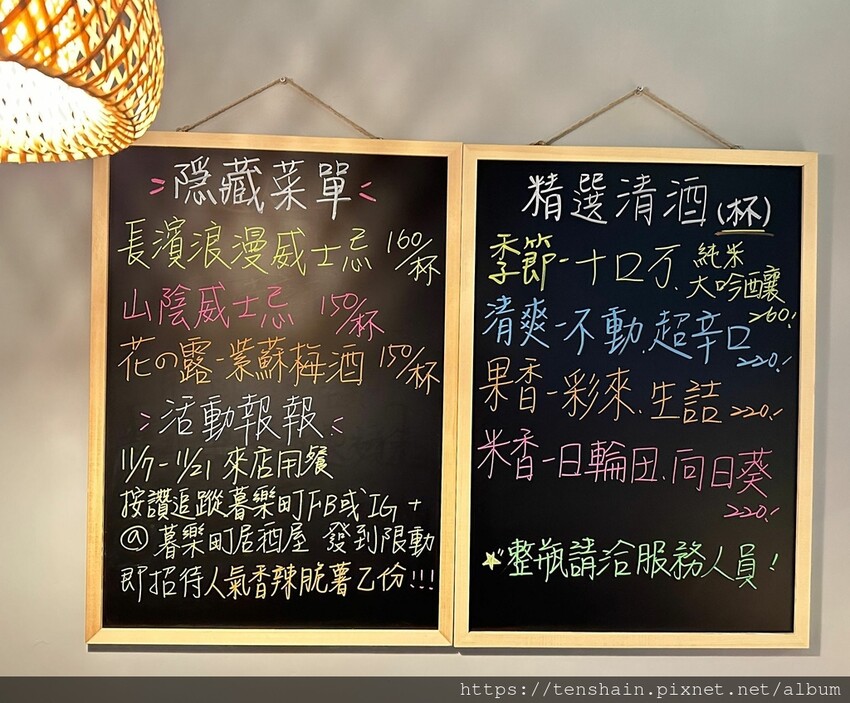 隱藏菜單
長濱浪漫威士忌 160/杯
山陰威士忌 150/杯
花の露-紫蘇梅酒 150/杯
活動報報
11/7-11/21 來店用餐
按讚追蹤暮樂町FB或IG +
@暮樂町居酒屋 發到限動
即招待人氣香辣脆薯乙份!!!
精選清酒(杯)
季節-十口万、純米
大吟釀
260.-
清爽-不動、超辛口
220.-
果香-彩來、生詰 220.-
米香-日輪田、向日葵
220.-
整瓶請洽服務人員!
https://tenshain.pixnet.net/album